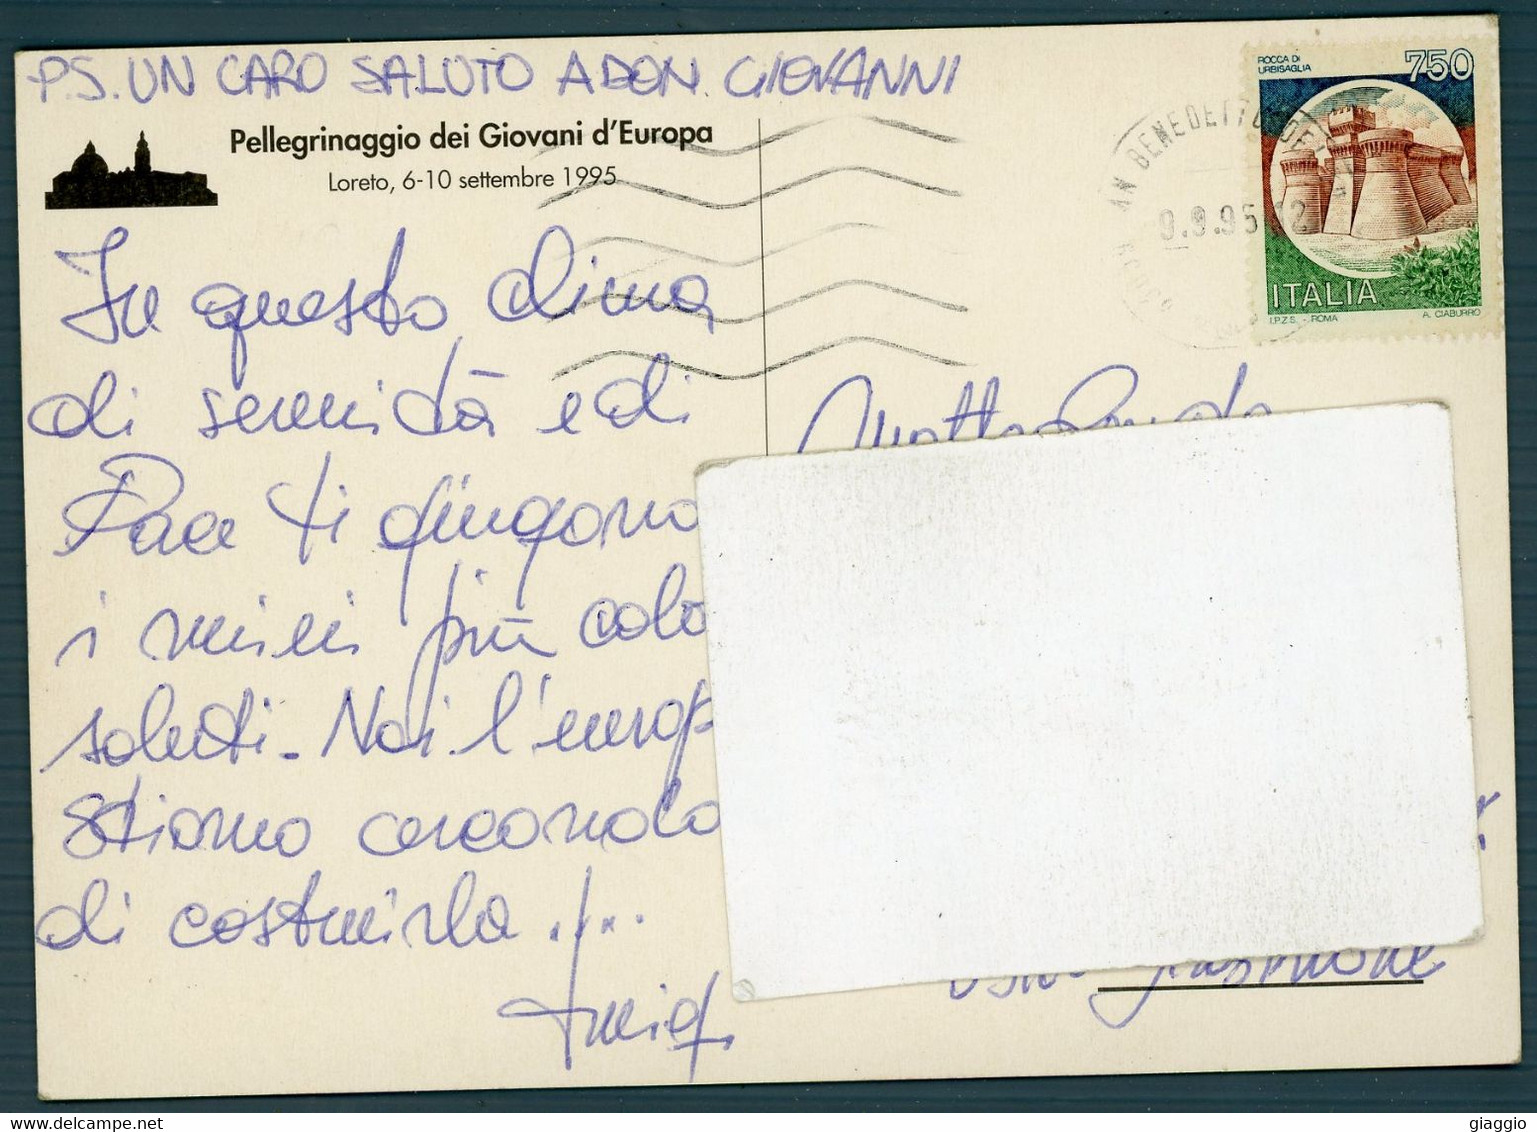 P.S. UN CARO SALUTO A DON GIOVANNI
Pellegrinaggio dei Giovani d'Europa
Loreto, 6-10 settembre 1995
In questo clima
di serenità e di
Pace ti giungono
i miei più calo
saluti - Noi l'europ
stiamo cercando
di costruirla ....
ROCCA DI
URBISAGLIA
750
ITALIA
I.P.Z.S. - ROMA
A. CIABURRO
AN BENEDETTO DEL
9.9.95 12
giaggio